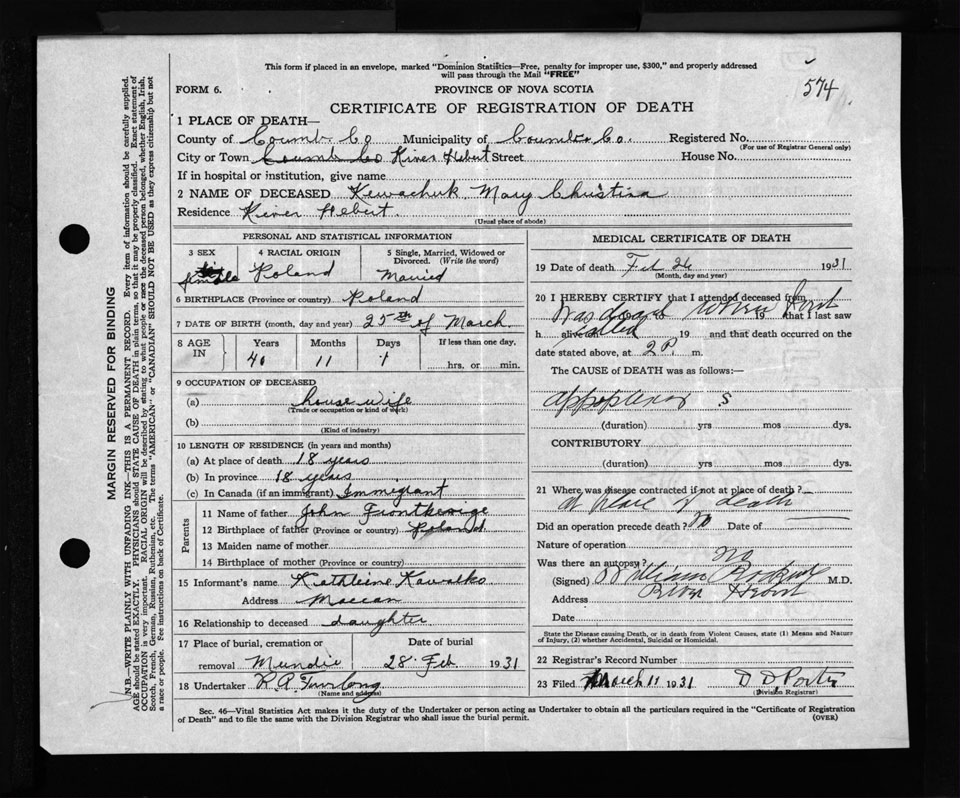 This form if placed in an envelope, marked "Dominion Statistics—Free, penalty for improper use, $300," and properly addressed
will pass through the Mail "FREE"
574
FORM 6.
PROVINCE OF NOVA SCOTIA
CERTIFICATE OF REGISTRATION OF DEATH
1 PLACE OF DEATH—
County of Cumb Co Municipality of Co. Registered No.
(For use of Registrar General only)
City or Town River Hebert Street House No.
If in hospital or institution, give name
2 NAME OF DECEASED Kewachuk Mary Christina
Residence River Hebert.
(Usual place of abode)
PERSONAL AND STATISTICAL INFORMATION
3 SEX 4 RACIAL ORIGIN 5 Single, Married, Widowed or
Divorced. (Write the word)
female Poland Married
6 BIRTHPLACE (Province or country) Poland
7 DATE OF BIRTH (month, day and year) 25th of March.
8 AGE IN Years Months Days If less than one day,
40 11 1 hrs, or min.
9 OCCUPATION OF DECEASED
(a) house wife
(Trade or occupation or kind of work)
(b)
(Kind of industry)
10 LENGTH OF RESIDENCE (in years and months)
(a) At place of death 18 years
(b) In province 18 years
(c) In Canada (if an immigrant) Immigrant
Parents
11 Name of father John
12 Birthplace of father (Province or country) Poland
13 Maiden name of mother
14 Birthplace of mother (Province or country)
15 Informant's name Kathleine Kawalko
Address Maccan
16 Relationship to deceased daughter
17 Place of burial, cremation or Date of burial
removal Mundie 28 Feb 1931
18 Undertaker R A Furlong
(Name and address)
MEDICAL CERTIFICATE OF DEATH
19 Date of death Feb 26 1931
(Month, day and year)
20 I HEREBY CERTIFY that I attended deceased from
Was dead when first
to 19 that I last saw
h alive on called 19 and that death occurred on the
date stated above, at 2 P. m.
The CAUSE of DEATH was as follows:—
(duration) yrs mos dys.
CONTRIBUTORY
(duration) yrs mos dys.
21 Where was disease contracted if not at place of death?
at place of death
Did an operation precede death? no Date of
Nature of operation
Was there an autopsy? no
(Signed) William M.D.
Address River Hebert
Date
State the Disease causing Death, or in death from Violent Causes, state (1) Means and Nature
of Injury, (2) whether Accidental, Suicidal or Homicidal.
22 Registrar's Record Number
23 Filed March 11 1931 D D Porter
(Division Registrar)
Sec. 46—Vital Statistics Act makes it the duty of the Undertaker or person acting as Undertaker to obtain all the particulars required in the "Certificate of Registration
of Death" and to file the same with the Division Registrar who shall issue the burial permit.
(OVER)
MARGIN RESERVED FOR BINDING
N.B.—WRITE PLAINLY WITH UNFADING INK—THIS IS A PERMANENT RECORD. Every item of information should be carefully supplied.
AGE should be stated EXACTLY. PHYSICIANS should STATE CAUSE OF DEATH in plain terms, so that it may be properly classified. Exact statement of
OCCUPATION is very important. RACIAL ORIGIN will be described by stating to what people or race the deceased person belonged, whether English, Irish,
Scotch, French, German, Russian, Ruthenian, etc. The terms "AMERICAN" or "CANADIAN" SHOULD NOT BE USED as they express citizenship but not
a race or people. See instructions on back of Certificate.